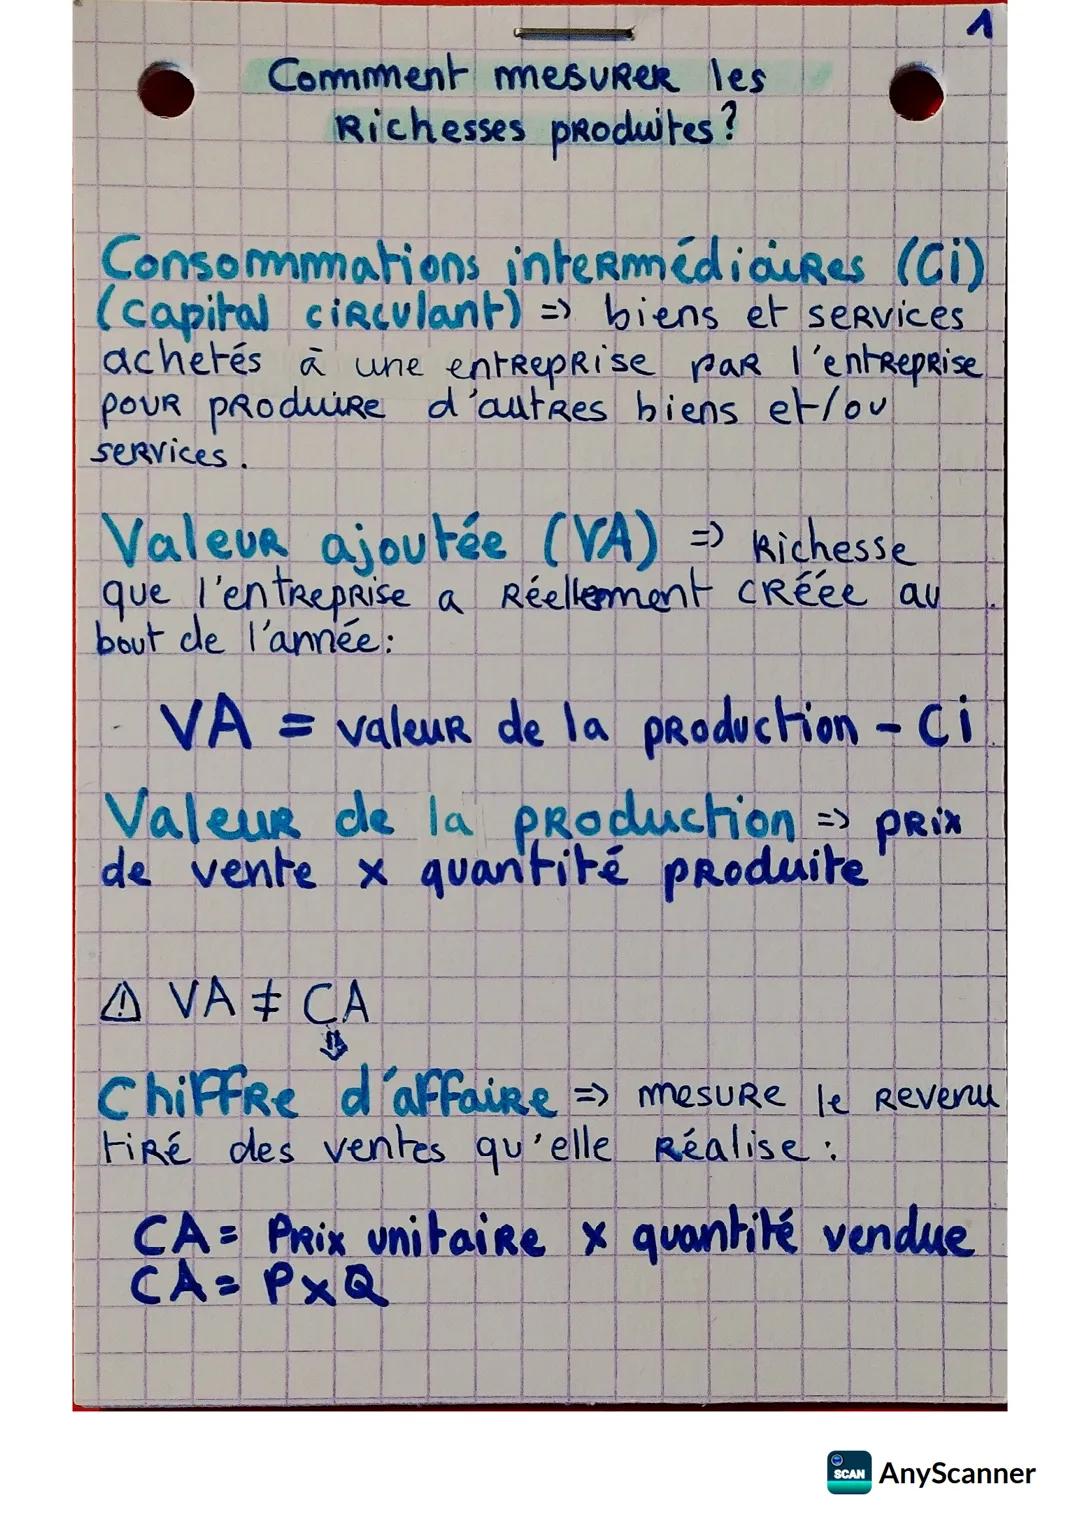 1
Comment mesurer les
Richesses produites?
Consommations intermédiaires (Ci)
(capital circulant) => biens et services
achetés à une entreprise par l'entreprise
pour produire d'autres biens et/ou
services.
Valeur ajoutée (VA) => Richesse
que l'entreprise a Réellement créée au
bout de l'année:
VA = valeur de la production - Ci
Valeur de la production => prix
de vente x quantité produite
⚠ VA ≠ CA
⇓
Chiffre d'affaire => mesure le revenu
tiré des ventes qu'elle Réalise :
CA = Prix unitaire x quantité vendue
CA = P x Q
SCAN AnyScanner